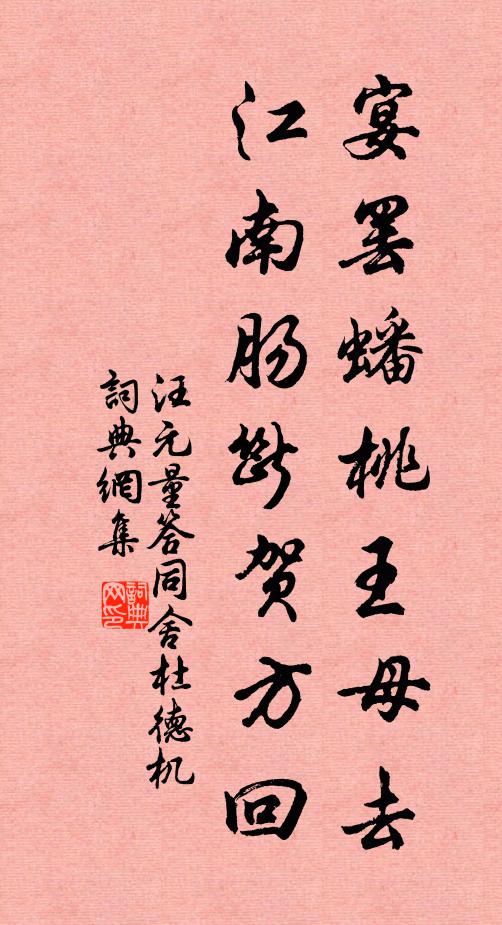 宴罢蟠桃王母去
江南肠断贺方回
汪元量答同舍杜德机
詞典網集
詞典网印